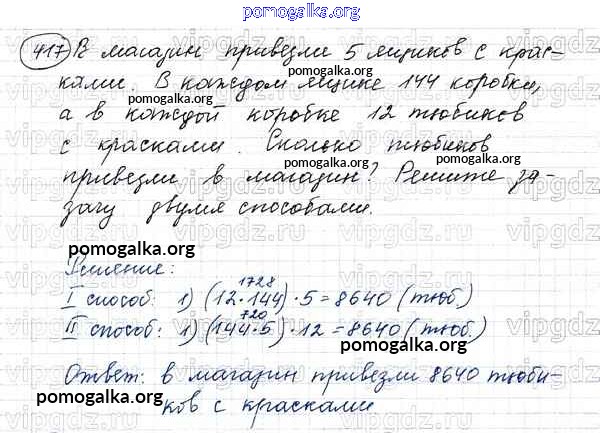 pomogalka.org
417 В магазин привезли 5 ящиков с крас-
ками. В каждом ящике 144 коробки,
pomogalka.org
а в каждой коробке 12 тюбиков
pomogalka.org
с красками. Сколько тюбиков
pomogalka.org
привезли в магазин? Решите за-
дачу двумя способами.
pomogalka.org
pomogalka.org
Решение:
1728
I способ: 1) (12·144)·5=8640 (тюб.)
720
II способ: 1) (144·5)·12=8640 (тюб.)
pomogalka.org
Ответ: в магазин привезли 8640 тюби-
ков с красками
pomogalka.org
vipgdz.ru